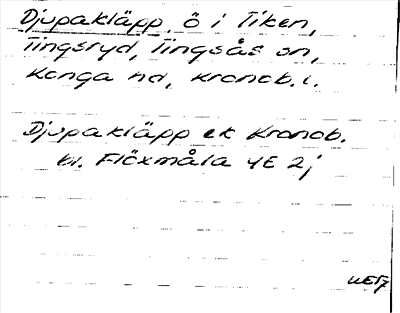 Djupakläpp, ö i Tiken,
Tingsryd, Tingsås sn,
Konga hd, Kronob. l.
Djupakläpp ek Kronob.
bl. Flöxmåla 4E 2j